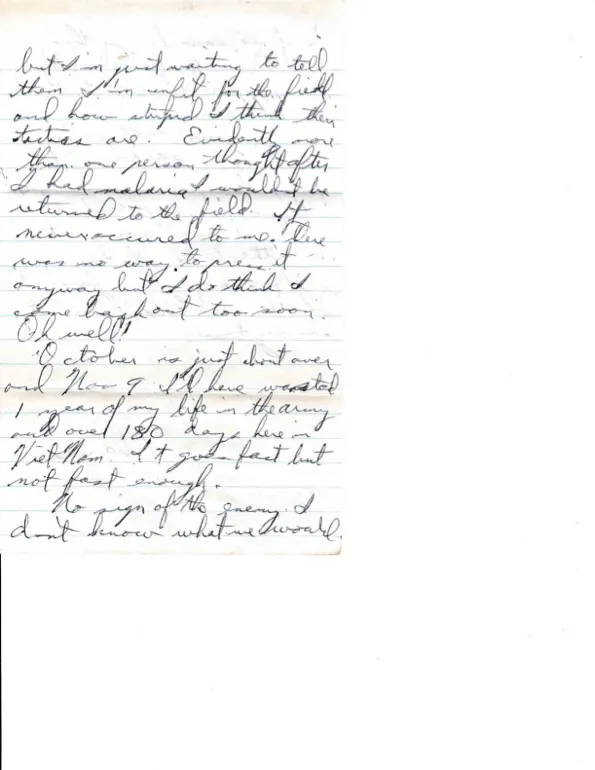 but I'm just waiting to tell
them I'm unfit for the field
and how stupid I think their
tactics are. Evidently more
than one person thought after
I had malaria I wouldn't be
returned to the field. It
never occured to me. There
was no way to press it
anyway but I do think I
came back out too soon.
Oh well!
October is just about over
and Nov 9 I'll have wasted
1 year of my life in the army
and over 180 days here in
Viet Nam. It goes fast but
not fast enough.
No sign of the enemy. I
don't know what we would